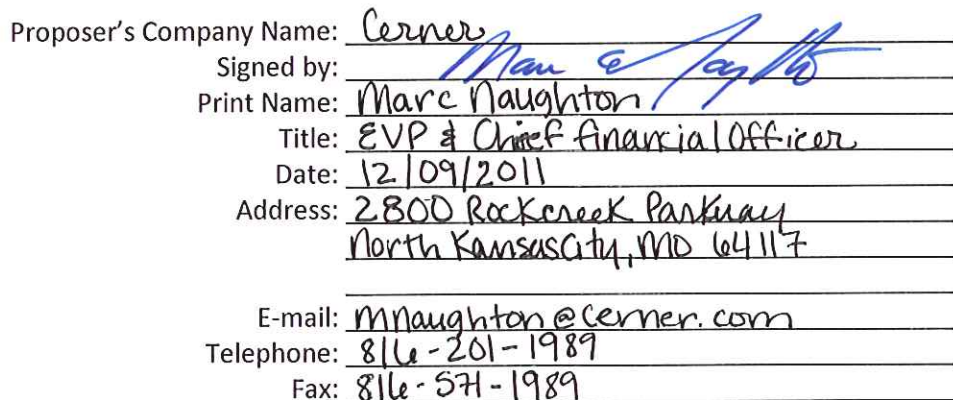 Proposer's Company Name: Cerner
Signed by: Marc G Naughton
Print Name: Marc Naughton
Title: EVP & Chief Financial Officer
Date: 12/09/2011
Address: 2800 Rockcreek Parkway
North Kansas City, MO 64117
E-mail: mnaughton@cerner.com
Telephone: 816-201-1989
Fax: 816-571-1989